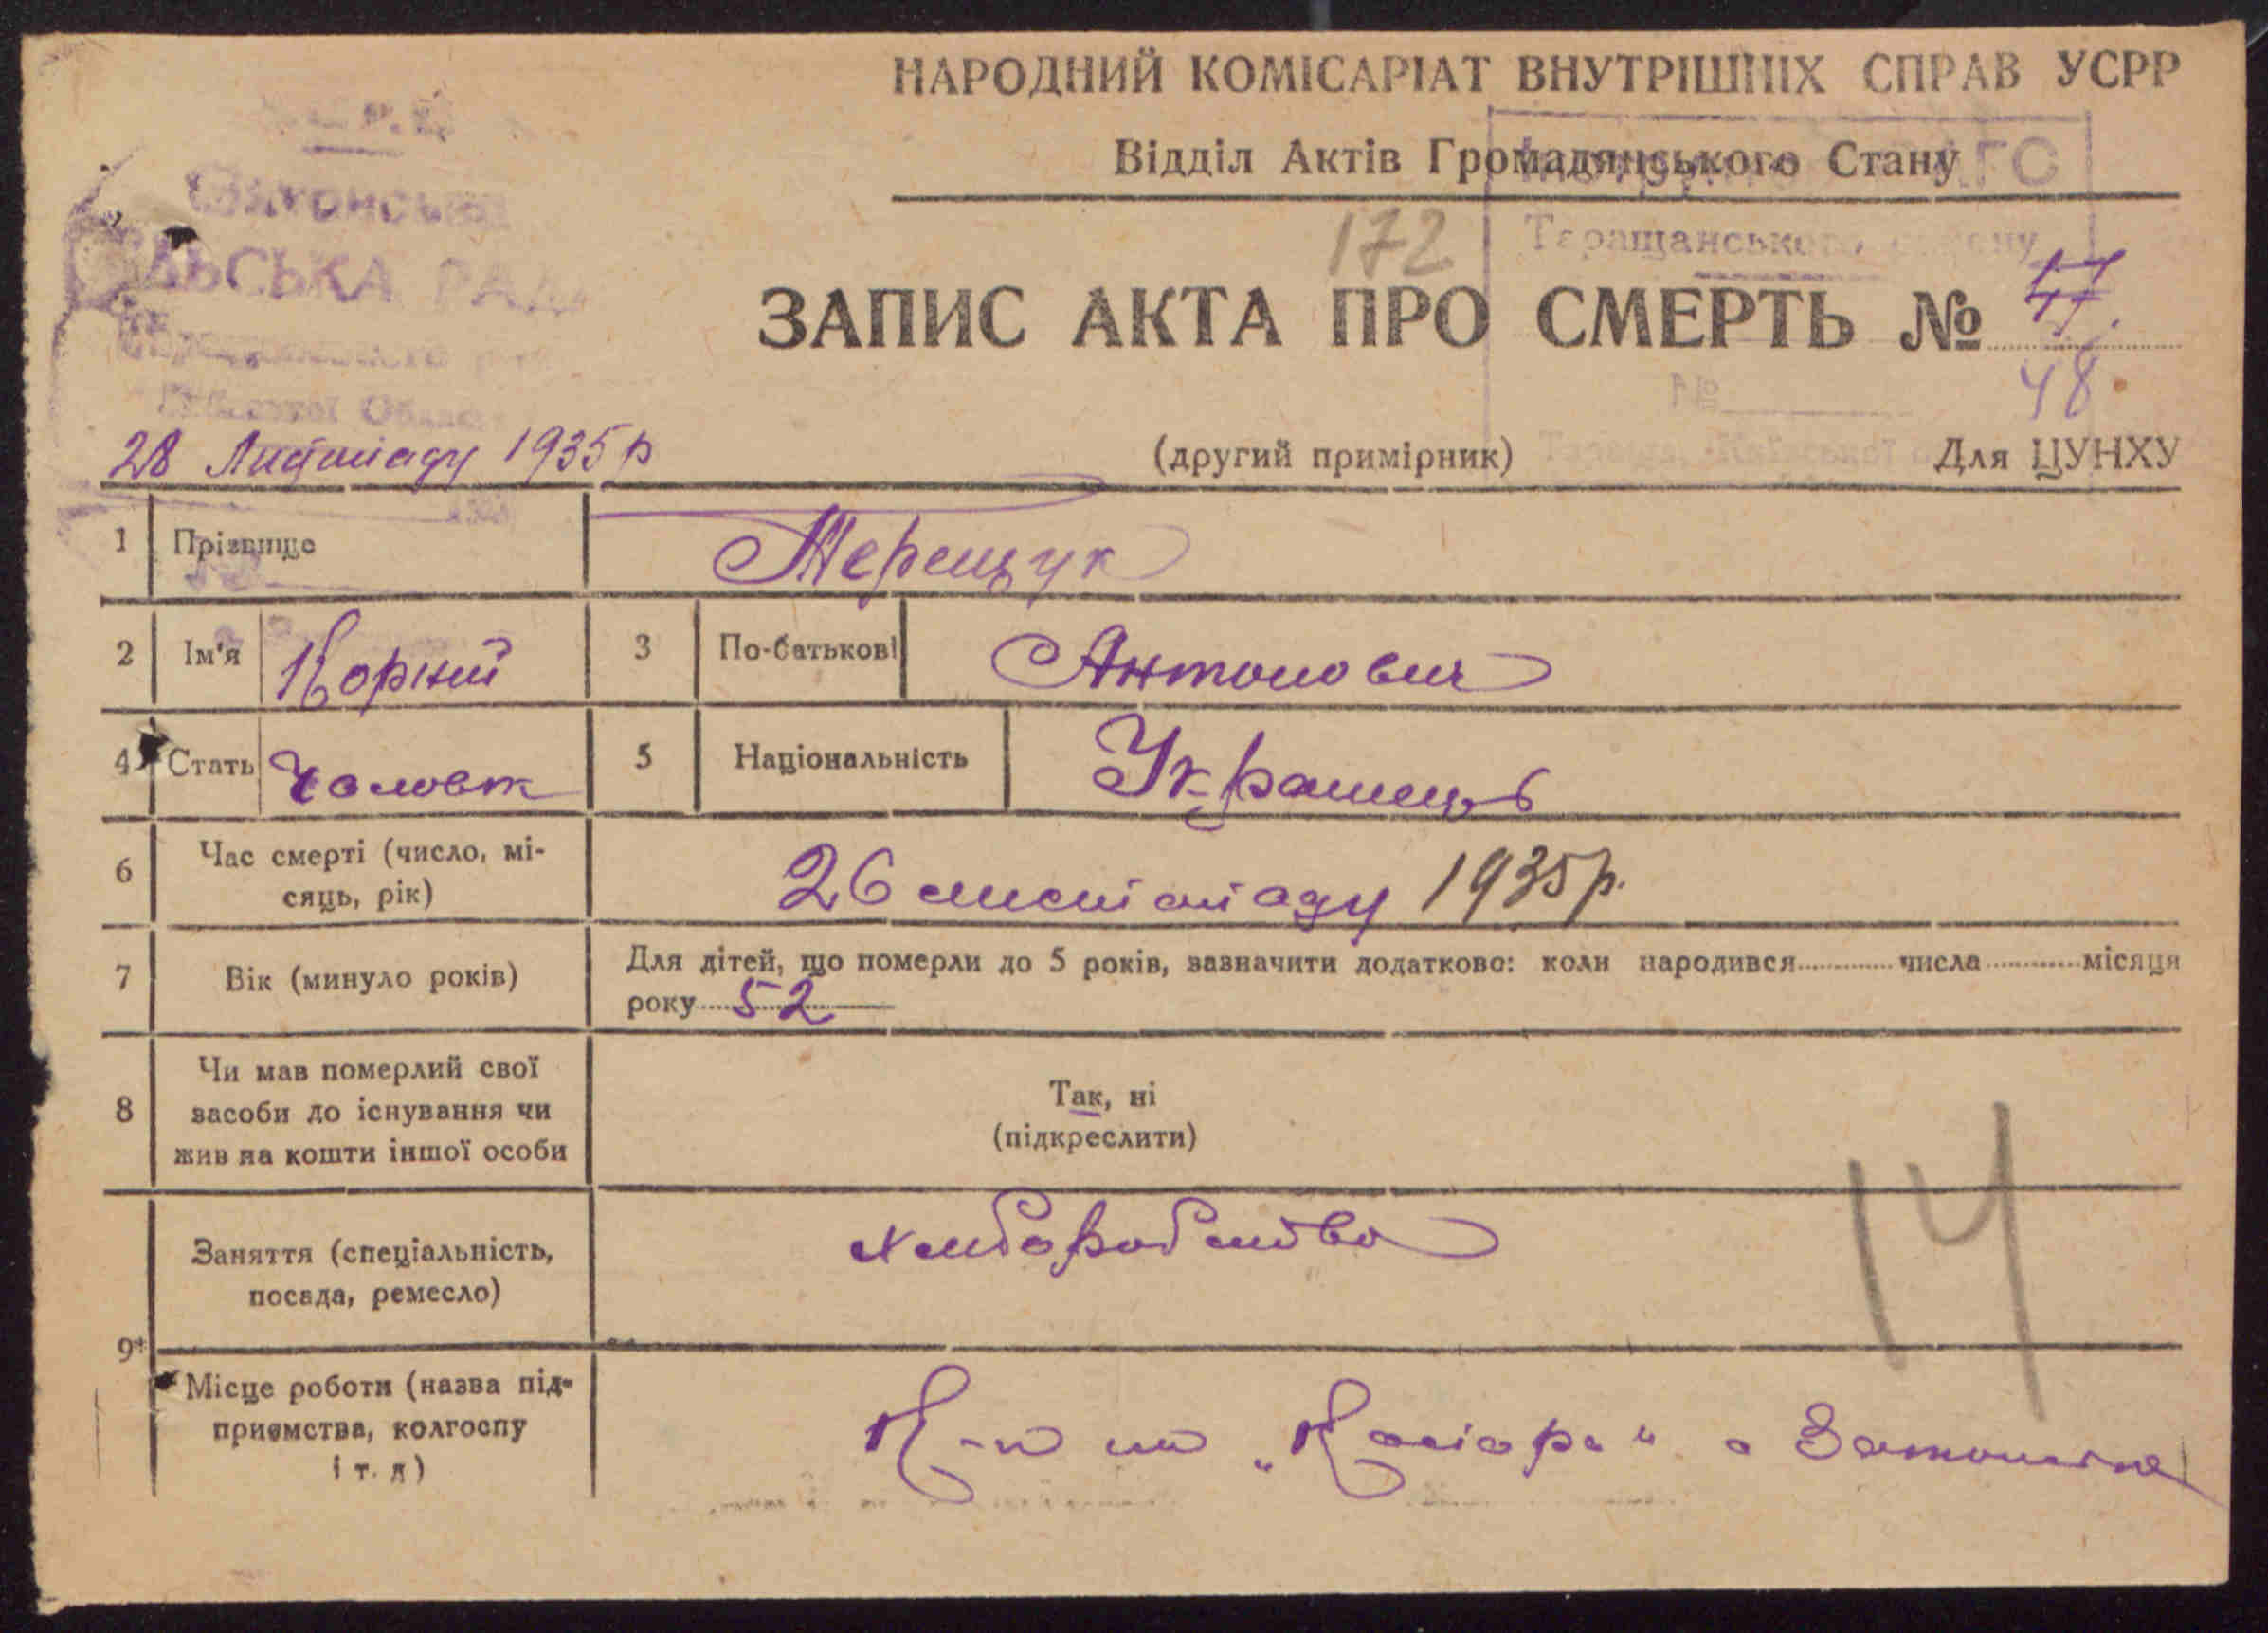 НАРОДНИЙ КОМІСАРІАТ ВНУТРІШНІХ СПРАВ УСРР
Відділ Актів Громадянського Стану
АГС
172
Таращанського
ЛЬСЬКА РАДА
ЗАПИС АКТА ПРО СМЕРТЬ № 47.
№
48
28 Листопаду 1935 р
(другий примірник)
Для ЦУНХУ
1 Прізвище Терещук
2 Ім'я Корній 3 По-батькові Антонович
4 Стать Чоловік 5 Національність Українець
6 Час смерті (число, мі-
сяць, рік) 26 листопаду 1935 р.
7 Вік (минуло років) Для дітей, що померли до 5 років, зазначити додатково: коли народився числа місяця
року 52
8 Чи мав померлий свої
засоби до існування чи
жив на кошти іншої особи
Так, ні
(підкреслити)
14
9* Заняття (спеціальність,
посада, ремесло) хліборобство
Місце роботи (назва під-
приємства, колгоспу
і т. д) К-п ім „Косіора"